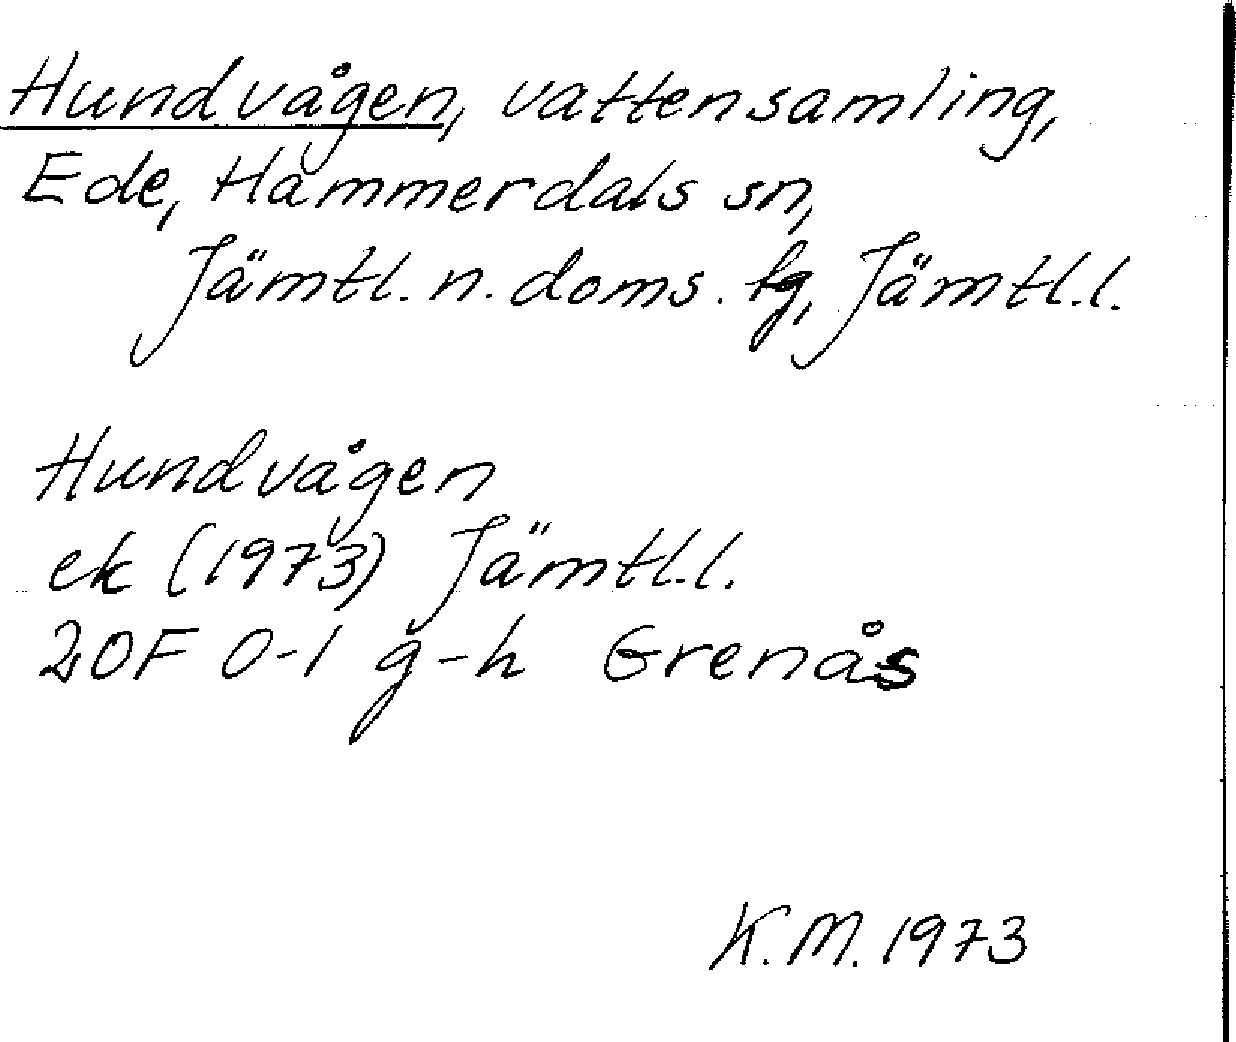 Hundvågen, vattensamling,
Ede, Hammerdals sn,
Jämtl. n. doms. tg, Jämtl.l.
Hundvågen
ek (1973) Jämtl.l.
20F 0-1 g-h Grenås
K.M. 1973